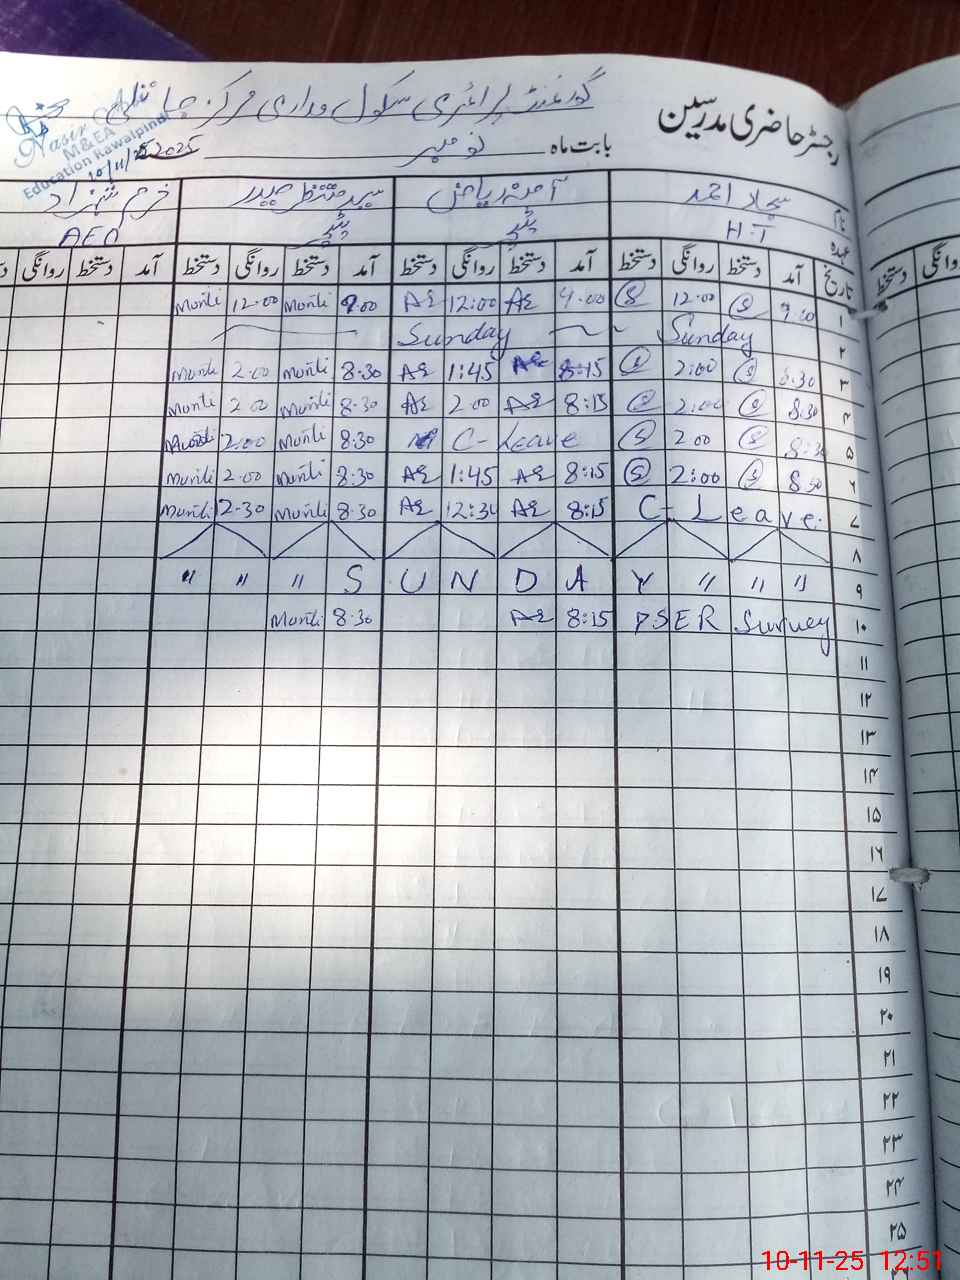 رجسٹر حاضری مدرسین
گورنمنٹ پرائمری سکول وداری مرکز
Nasir
M&EA
Education Rawalpindi
10/11/25
بابت ماہ نومبر 2025
نام سجاد احمد آمنہ ریاض سید منتظر حیدر خرم شہزاد
عہدہ H.T AEO
تاریخ آمد دستخط روانگی دستخط آمد دستخط روانگی دستخط آمد دستخط روانگی دستخط آمد دستخط روانگی
۱ 9.00 S 12:00 S 9.00 AR 12:00 AR 9.00 Munti 12.00 Munti
۲ Sunday Sunday
۳ 8.30 S 2:00 S 8:15 AR 1:45 AR 8.30 Munti 2.00 Munti
۴ 8.30 S 2:00 S 8:15 AR 2.00 AR 8.30 Munti 2.00 Munti
۵ 8:30 S 2.00 S C-Leave 8.30 Munti 2.00 Munti
۶ 8.30 S 2:00 S 8:15 AR 1:45 AR 8.30 Munti 2.00 Munti
۷ C-Leave. 8:15 AR 12:30 AR 8.30 Munti 2.30 Munti
۸
۹ " " " S U N D A Y " " "
۱۰ PSER Survey 8:15 AR 8.30 Munti
۱۱
۱۲
۱۳
۱۴
۱۵
۱۶
۱۷
۱۸
۱۹
۲۰
۲۱
۲۲
۲۳
۲۴
۲۵
روانگی دستخط
10-11-25 12:51